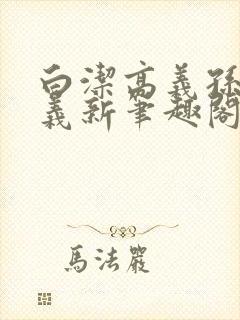 白潔高義孫
義新筆趣閣
馬法嚴